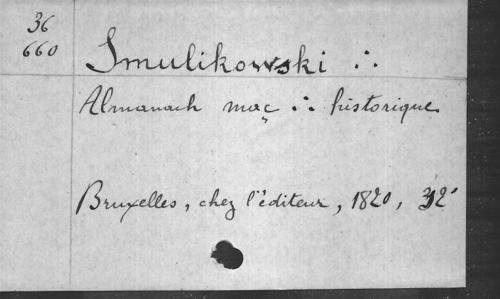 36
660
Smulikowski ∴
Almanach maç ∴ historique
Bruxelles, chez l'éditeur, 1820, 32°